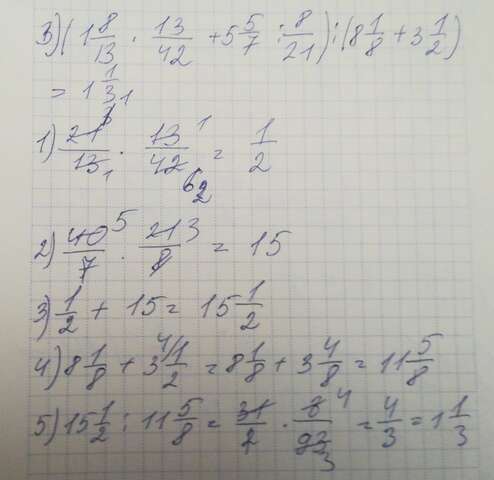 3) (1 8/13 · 13/42 + 5 5/7 : 8/21) : (8 1/8 + 3 1/2)
= 1 1/3
1) 21/13 · 13/42 = 1/2
2) 40/7 · 21/8 = 15
3) 1/2 + 15 = 15 1/2
4) 8 1/8 + 3 1/2 = 8 1/8 + 3 4/8 = 11 5/8
5) 15 1/2 : 11 5/8 = 31/2 · 8/93 = 4/3 = 1 1/3